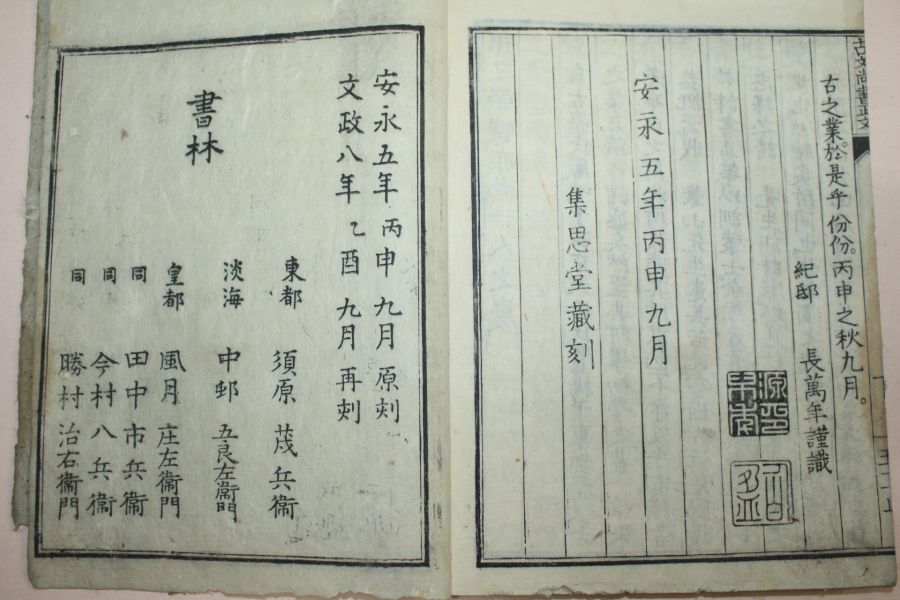 古文尚書正文
古之業於是乎份份。丙申之秋九月。
紀邸　長萬年謹識
安永五年丙申九月
集思堂藏刻
安永五年丙申九月原刻
文政八年乙酉九月再刻
書林
東都　須原茂兵衞
淡海　中邨五良左衞門
皇都　風月庄左衞門
同　田中市兵衞
同　今村八兵衞
同　勝村治右衞門